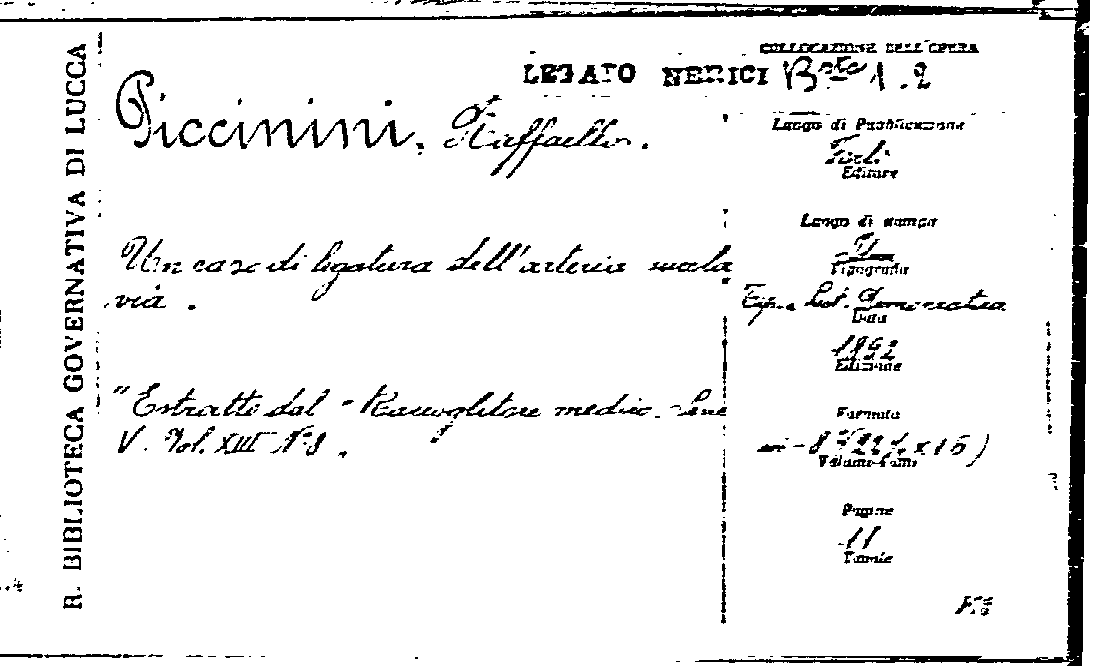 R. BIBLIOTECA GOVERNATIVA DI LUCCA
COLLOCAZIONE DELL'OPERA
LEGATO NERICI B.sta 1.2
Piccinini, Raffaello.
Luogo di Pubblicazione
Forlì
Editore
Un caso di ligatura dell'arteria
via.
Luogo di stampa
Tipografia
Tip. Lit. Democratica
Data
1892
Edizione
"Estratto dal "Raccoglitore medico. Serie
V. Vol. XIII N. 8.
Formato
in-8° (22½ x 15)
Pagine
11
Tavole